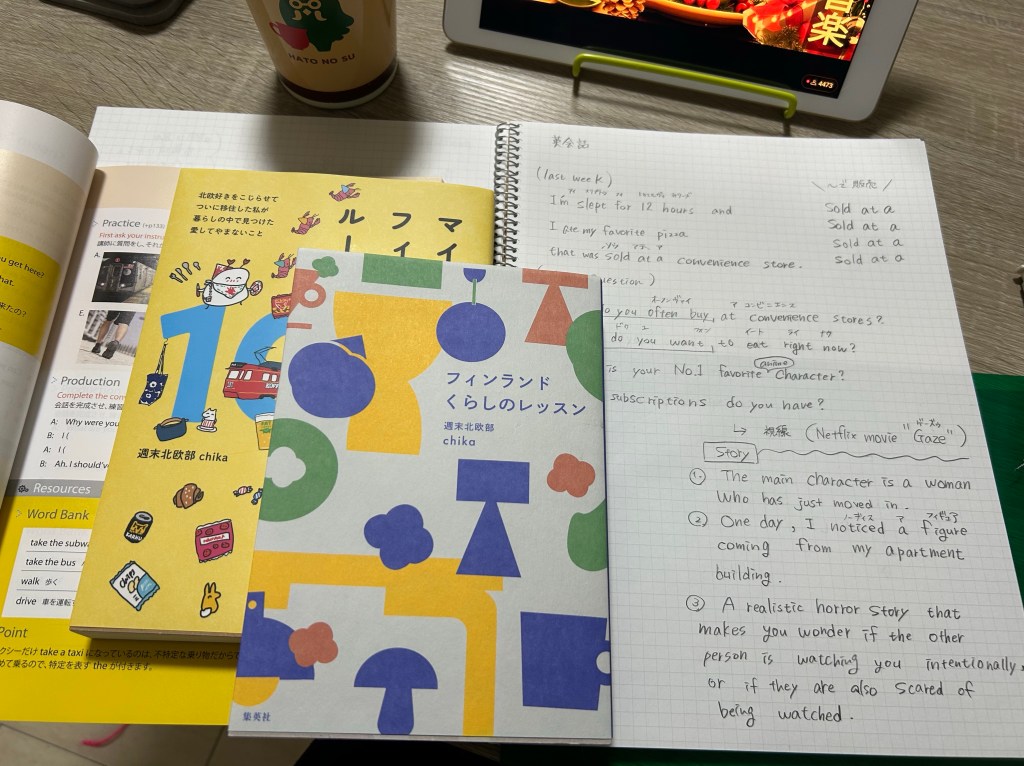 HATO NO SU
音楽
4473
Practice (→p133)
First ask your instru
A.
E.
u get here?
hat.
来たの?
Production
Complete the con
会話を完成させ、練習
A: Why were you
B: I (
A: I (
B: Ah. I should'v
Resources
Word Bank
take the subw
take the bus
walk 歩く
drive 車を運転
Point
クシーだけ take a taxi になっているのは、不特定な乗り物だから
めて乗るので、特定を表す the が付きます。
北欧好きをこじらせて
ついに移住した私が
暮らしの中で見つけた
愛してやまないこと
マイ
フィ
ルー
10
週末北欧部 chika
KARHU
Chips
フィンランド
くらしのレッスン
週末北欧部
chika
集英社
英会話
(last week)
I'm slept for 12 hours and
I ate my favorite pizza
that was sold at a convenience store.
\ 〜で 販売 /
Sold at a
Sold at a
Sold at a
Sold at a
uestion)
o you often buy, at convenience stores?
do you want, to eat right now?
anime
is your No.1 favorite character?
subscriptions do you have?
↳ 視線 (Netflix movie "Gaze")
Story
① The main character is a woman
who has just moved in.
② One day, I noticed a figure
coming from my apartment
building.
③ A realistic horror story that
makes you wonder if the other
person is watching you intentionally,
or if they are also scared of
being watched.